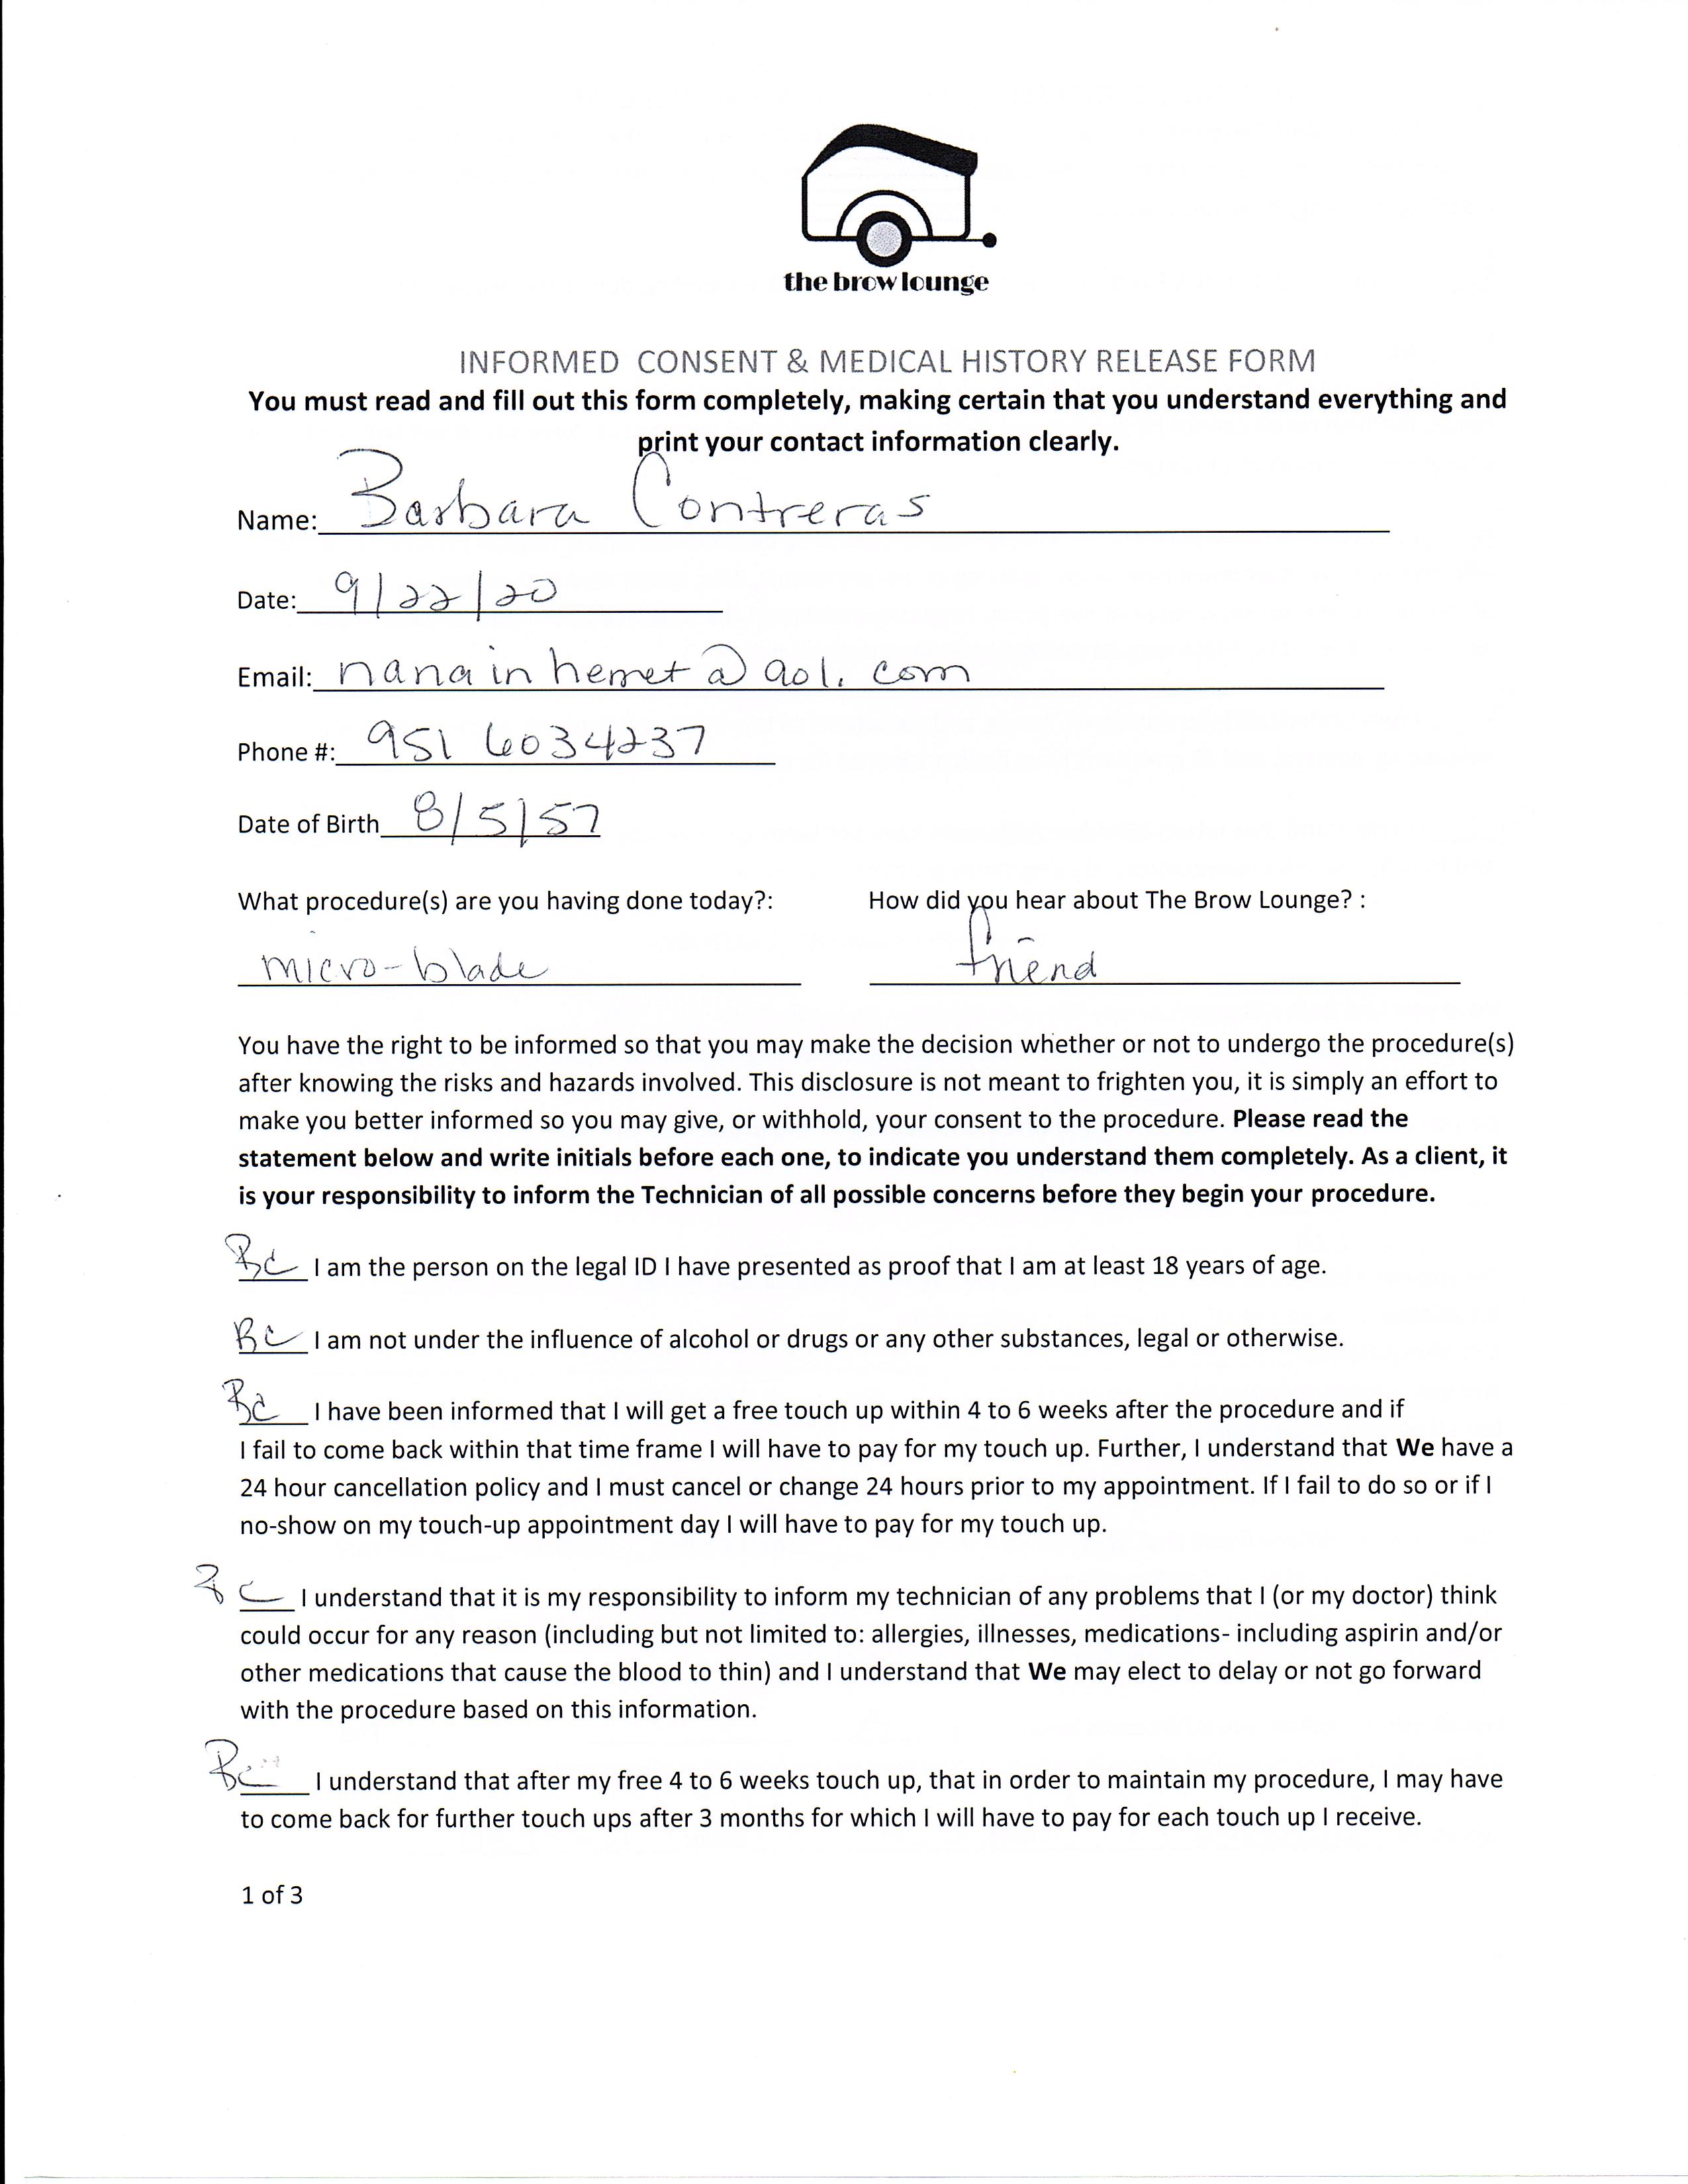 the brow lounge
INFORMED CONSENT & MEDICAL HISTORY RELEASE FORM
You must read and fill out this form completely, making certain that you understand everything and
print your contact information clearly.
Name: Barbara Contreras
Date: 9/22/20
Email: nanainhemet@aol.com
Phone #: 951 6034237
Date of Birth 8/5/57
What procedure(s) are you having done today?: How did you hear about The Brow Lounge? :
micro-blade friend
You have the right to be informed so that you may make the decision whether or not to undergo the procedure(s)
after knowing the risks and hazards involved. This disclosure is not meant to frighten you, it is simply an effort to
make you better informed so you may give, or withhold, your consent to the procedure. Please read the
statement below and write initials before each one, to indicate you understand them completely. As a client, it
is your responsibility to inform the Technician of all possible concerns before they begin your procedure.
BC I am the person on the legal ID I have presented as proof that I am at least 18 years of age.
BC I am not under the influence of alcohol or drugs or any other substances, legal or otherwise.
BC I have been informed that I will get a free touch up within 4 to 6 weeks after the procedure and if
I fail to come back within that time frame I will have to pay for my touch up. Further, I understand that We have a
24 hour cancellation policy and I must cancel or change 24 hours prior to my appointment. If I fail to do so or if I
no-show on my touch-up appointment day I will have to pay for my touch up.
BC I understand that it is my responsibility to inform my technician of any problems that I (or my doctor) think
could occur for any reason (including but not limited to: allergies, illnesses, medications- including aspirin and/or
other medications that cause the blood to thin) and I understand that We may elect to delay or not go forward
with the procedure based on this information.
BC I understand that after my free 4 to 6 weeks touch up, that in order to maintain my procedure, I may have
to come back for further touch ups after 3 months for which I will have to pay for each touch up I receive.
1 of 3